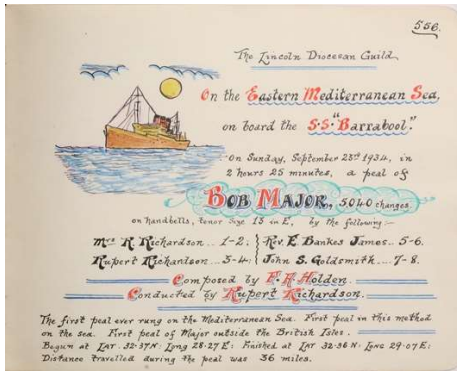 556.
The Lincoln Diocesan Guild
On the Eastern Mediterranean Sea,
on board the S.S. "Barrabool."
On Sunday, September 23rd 1934, in
2 hours 25 minutes, a peal of
BOB MAJOR, 5,040 changes
on handbells, tenor size 15 in E, by the following:-
Mrs R Richardson... 1-2: Rev. E. Bankes James... 5-6.
Rupert Richardson... 3-4: John S. Goldsmith... 7-8.
Composed by F. H. Holden.
Conducted by Rupert Richardson.
The first peal ever rung on the Mediterranean Sea. First peal in this method
on the sea. First peal of Major outside the British Isles.
Begun at LAT. 32·37N: Long 28·27E: Finished at LAT 32·36 N: Long 29·07E:
Distance travelled during the peal was 36 miles.